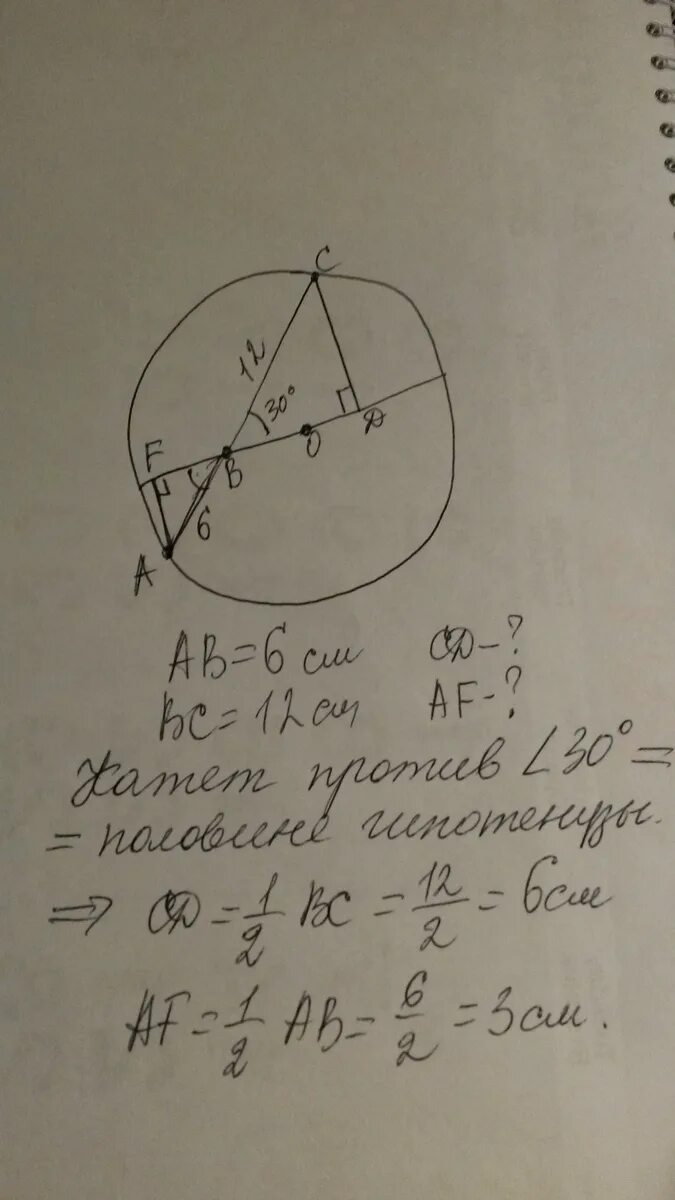 C
12
30°
F
B
O
D
6
A
AB=6 см CD-?
BC=12 см AF-?
Катет против ∠30°=
= половине гипотенузы.
⇒ CD = 1/2 BC = 12/2 = 6 см
AF = 1/2 AB = 6/2 = 3 см.